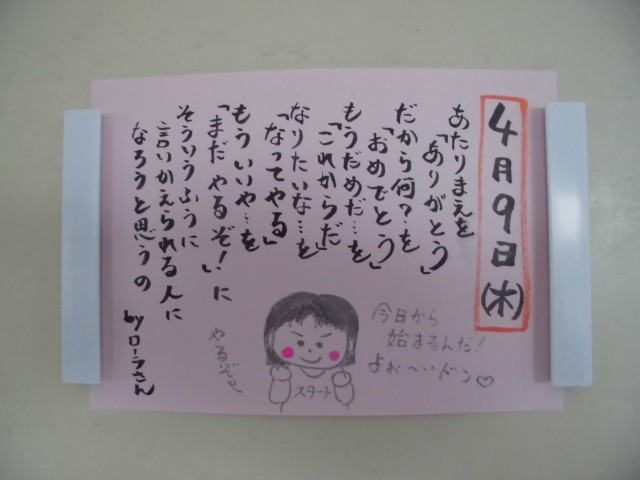 4月9日(木)
あたりまえを
「ありがとう」
だから何?を
「おめでとう」
もうだめだ…を
「これからだ」
なりたいな…を
「なってやる」
もういいや…を
「まだやるぞ!」に
そういうふうに
言いかえられる人に
なろうと思うの
byローラさん
今日から
始まるんだ!
よぉ〜いドン♡
スタート
やるぞぉ